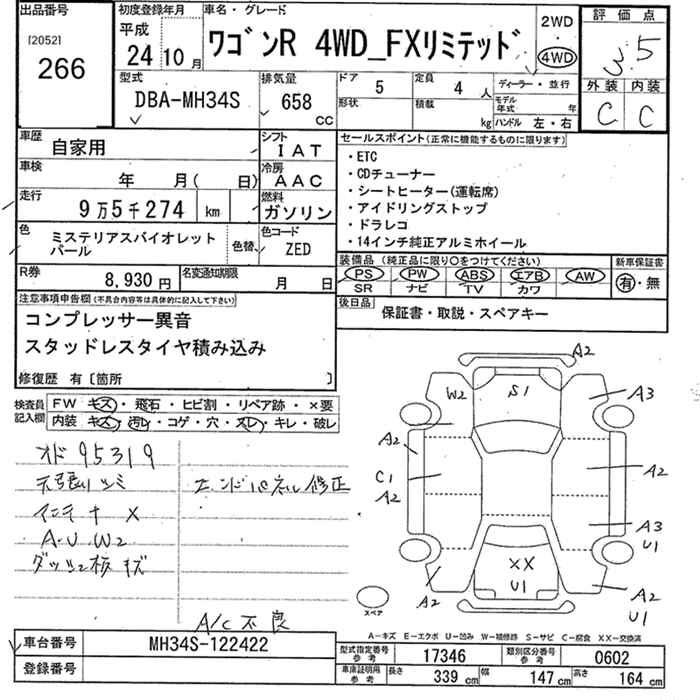 出品番号
[2052]
266
初度登録年月
平成
24 10月
車名・グレード
ワゴンR 4WD_FXリミテッド
2WD
・
4WD
評価点
3.5
外装 内装
C C
型式
DBA-MH34S
排気量
658
CC
ドア
5
定員
4 人
形状
積載
kg
ディーラー・並行
モデル年式 年
ハンドル 左・右
車歴
自家用
シフト
IAT
車検
年 月( 日)
冷房
AAC
走行
9万5千274 km
燃料
ガソリン
色
ミステリアスバイオレット
パール
色替
色コード
ZED
R券
8,930円
名変通知期限
月 日
セールスポイント(正常に機能するものに限ります)
・ETC
・CDチューナー
・シートヒーター(運転席)
・アイドリングストップ
・ドラレコ
・14インチ純正アルミホイール
装備品 (純正品に限り○をつけてください)
PS PW ABS エアB AW
SR ナビ TV カワ
新車保証書
有・無
後日品
保証書・取説・スペアキー
注意事項申告欄(不具合内容等は具体的に記入して下さい)
コンプレッサー異音
スタッドレスタイヤ積み込み
修復歴 有〔箇所 〕
検査員記入欄
FW キズ・飛石・ヒビ割・リペア跡・×要
内装 キズ・汚レ・コゲ・穴・スレ・キレ・破レ
オド 95319
天張りシミ
エンドパネル修正
インテナ X
A・U W2
キズ
A/C不良
A2
W2
S1
A3
A2
C1
A2
A2
A3
U1
XX
U1
A2
A2
U1
スペア
A-キズ E-エクボ U-凹み W-補修跡 S-サビ C-腐食 XX-交換済
車台番号
MH34S-122422
登録番号
型式指定番号
参考
17346
類別区分番号
参考
0602
車庫証明用
参考
長さ
339 cm
幅
147 cm
高さ
164 cm